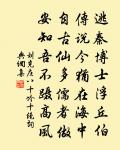 逃秦博士浮丘伯
傳說今猶在海中
自古仙多儒者做
安知吾不躐高風
劉克莊八十吟十絕詞
典詞集